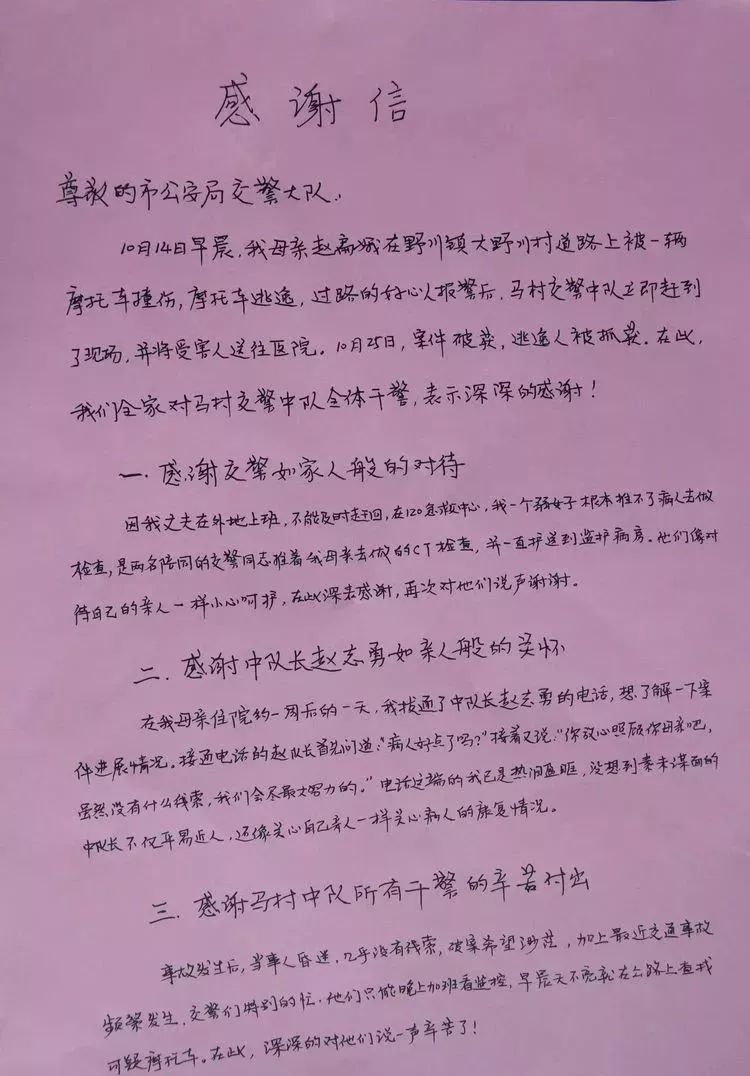 感谢信
尊敬的市公安局交警大队：
10月14日早晨，我母亲赵高娥在野川镇大野川村道路上被一辆
摩托车撞伤，摩托车逃逸，过路的好心人报警后，马村交警中队立即赶到
了现场，并将受害人送往医院。10月25日，案件破获，逃逸人被抓获。在此，
我们全家对马村交警中队全体干警，表示深深的感谢！
一．感谢交警如家人般的对待
因我丈夫在外地上班，不能及时赶回，在120急救中心，我一个弱女子根本推不了病人去做
检查，是两名陪同的交警同志推着我母亲去做的CT检查，并一直护送到监护病房。他们像对
待自己的亲人一样小心呵护，在此深表感谢，再次对他们说声谢谢。
二．感谢中队长赵志勇如亲人般的关怀
在我母亲住院约一周后的一天，我拨通了中队长赵志勇的电话，想了解一下案
件进展情况。接通电话的赵队长首先问道："病人好点了吗？"接着又说："你放心照顾你母亲吧，
虽然没有什么线索，我们会尽最大努力的。"电话这端的我已是热泪盈眶，没想到素未谋面的
中队长不仅平易近人，还像关心自己亲人一样关心病人的康复情况。
三．感谢马村中队所有干警的辛苦付出
事故发生后，当事人昏迷，几乎没有线索，破案希望渺茫，加上最近交通事故
频繁发生，交警们特别的忙．他们只能晚上加班看监控，早晨天不亮就在公路上查找
可疑摩托车。在此，深深的对他们说一声辛苦了！